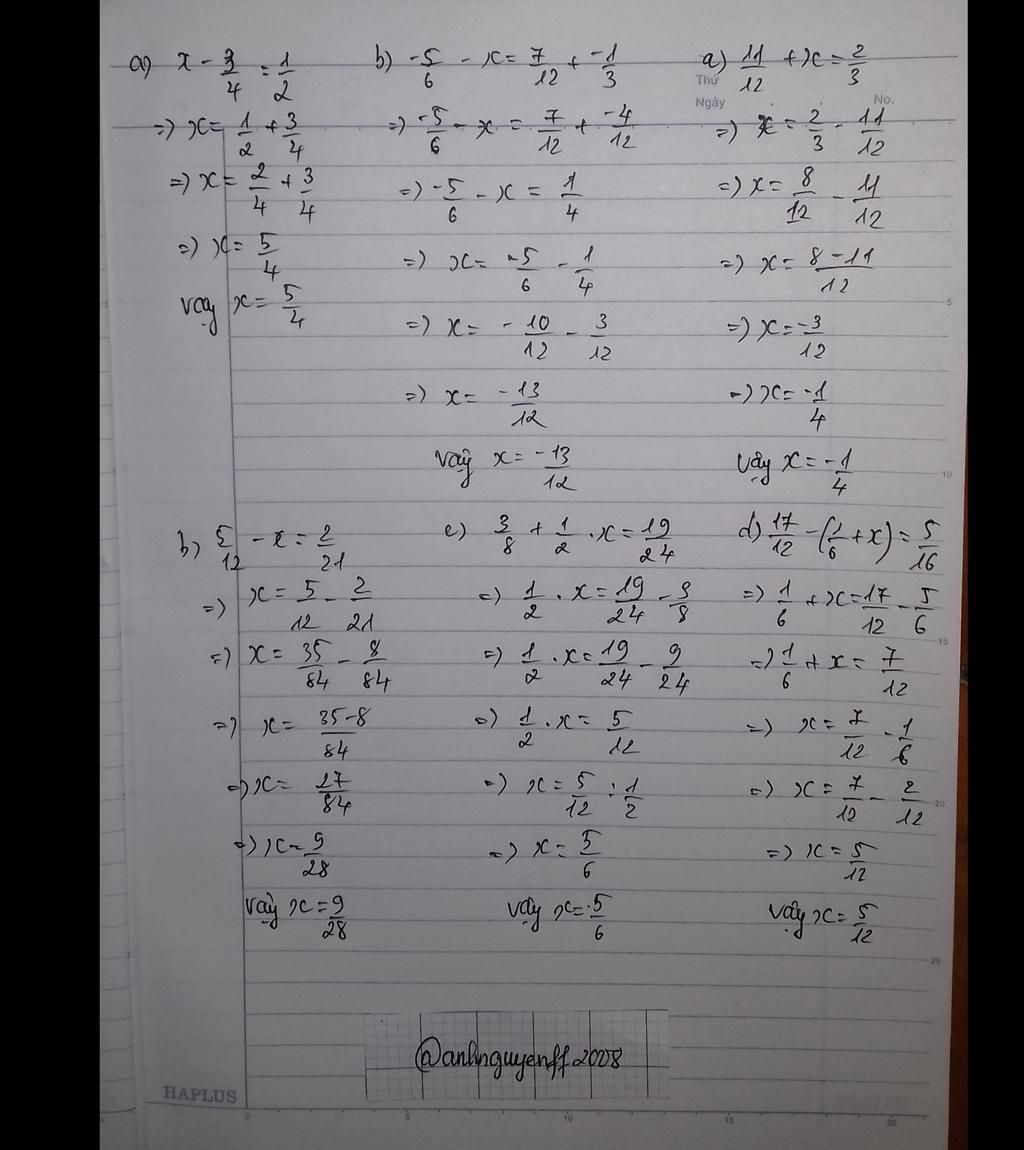 a) x - 3/4 = 1/2
=> x = 1/2 + 3/4
=> x = 2/4 + 3/4
=> x = 5/4
vậy x = 5/4
b) -5/6 - x = 7/12 + -1/3
=> -5/6 - x = 7/12 + -4/12
=> -5/6 - x = 1/4
=> x = -5/6 - 1/4
=> x = -10/12 - 3/12
=> x = -13/12
vậy x = -13/12
a) 11/12 + x = 2/3
Thứ
Ngày
No.
=> x = 2/3 - 11/12
=> x = 8/12 - 11/12
=> x = 8-11/12
=> x = -3/12
=> x = -1/4
vậy x = -1/4
b) 5/12 - x = 2/21
=> x = 5/12 - 2/21
=> x = 35/84 - 8/84
=> x = 35-8/84
=> x = 27/84
=> x = 9/28
vậy x = 9/28
c) 3/8 + 1/2 . x = 19/24
=> 1/2 . x = 19/24 - 3/8
=> 1/2 . x = 19/24 - 9/24
=> 1/2 . x = 5/12
=> x = 5/12 : 1/2
=> x = 5/6
vậy x = 5/6
d) 17/12 - (1/6 + x) = 5/16
=> 1/6 + x = 17/12 - 5/6
=> 1/6 + x = 7/12
=> x = 7/12 - 1/6
=> x = 7/12 - 2/12
=> x = 5/12
vậy x = 5/12
5
10
15
20
25
@anhnguyenff2008
HAPLUS
0 5 10 15 20